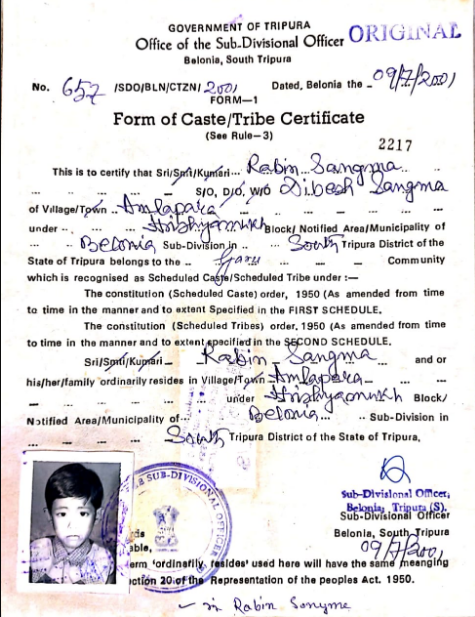 GOVERNMENT OF TRIPURA
Office of the Sub-Divisional Officer
ORIGINAL
Belonia, South Tripura
No. 657 /SDO/BLN/CTZN/ 2001 Dated, Belonia the 09/7/2001
FORM—1
Form of Caste/Tribe Certificate
(See Rule—3)
2217
This is to certify that Sri/Smti/Kumari... Rabin Sangma
S/O, D/O, W/O Dibesh Sangma
of Village/Town .. Amlapara
under .. Block/ Notified Area/Municipality of
Belonia Sub-Division in .. South Tripura District of the
State of Tripura belongs to the .. Garo Community
which is recognised as Scheduled Caste/Scheduled Tribe under :—
The constitution (Scheduled Caste) order, 1950 (As amended from time
to time in the manner and to extent Specified in the FIRST SCHEDULE.
The constitution (Scheduled Tribes) order, 1950 (As amended from time
to time in the manner and to extent specified in the SECOND SCHEDULE.
Sri/Smti/Kumari Rabin Sangma and or
his/her/family ordinarily resides in Village/Town Amlapara
under Block/
Notified Area/Municipality of... Belonia Sub-Division in
South Tripura District of the State of Tripura,
SUB-DIVISIONAL OFFICER
Sub-Divisional Officer,
Belonia, Tripura (S).
Sub-Divisional Officer
Belonia, South Tripura
09/7/2001
able,
erm 'ordinarily resides' used here will have the same meanging
ction 20 of the Representation of the peoples Act. 1950.
Rabin